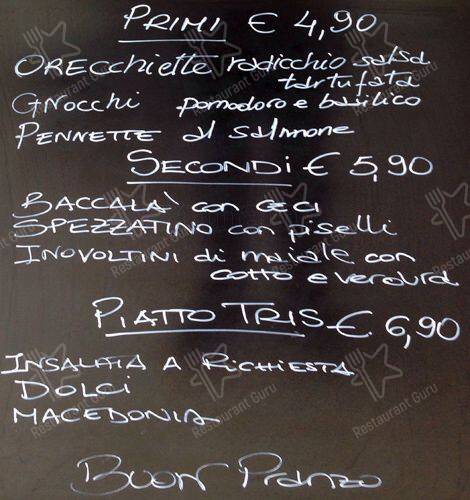 PRIMI € 4,90
ORECCHIETTE radicchio salsa
tartufata
GNOCCHI pomodoro e basilico
PENNETTE al salmone
SECONDI € 5,90
BACCALA' con CECI
SPEZZATINO con piselli
INOVOLTINI di maiale con
cotto e verdura
PIATTO TRIS € 6,90
INSALATA A RICHIESTA
DOLCI
MACEDONIA
BUON Pranzo
Restaurant Guru